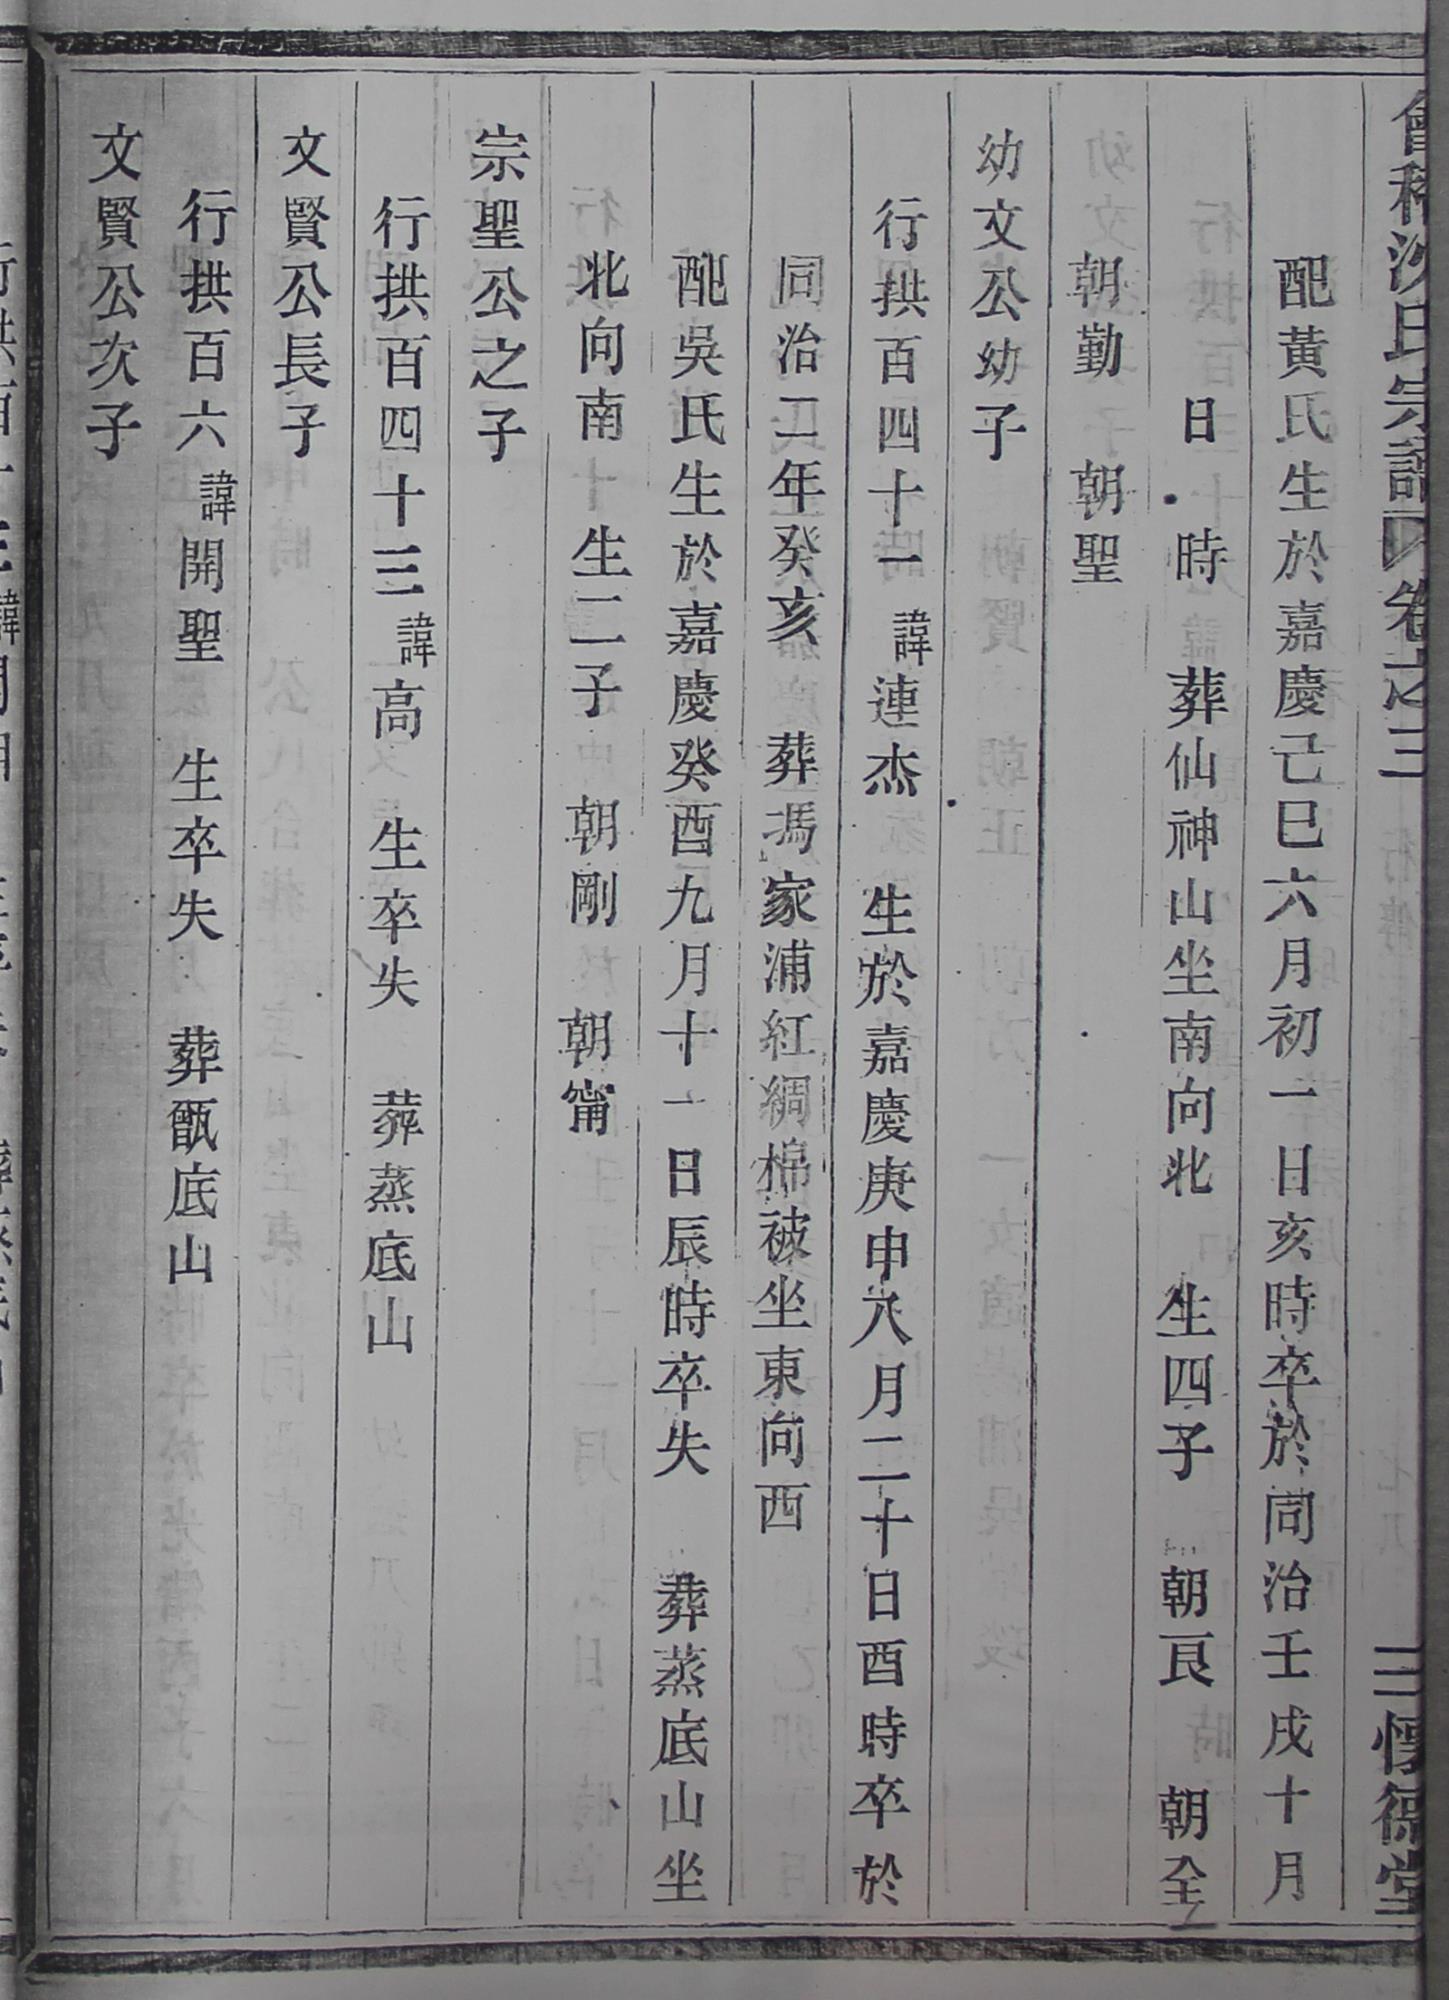 會稽沈氏宗譜 卷之三 三 惇德堂
配黃氏生於嘉慶己巳六月初一日亥時卒於同治壬戌十月
日 時 葬仙神山坐南向北 生四子 朝艮 朝全
朝勤 朝聖
幼文公幼子
行拱百四十一 諱連杰 生於嘉慶庚申八月二十日酉時卒於
同治二年癸亥 葬馮家浦紅綢棉被坐東向西
配吳氏生於嘉慶癸酉九月十一日辰時卒失 葬蒸底山坐
北向南 生二子 朝剛 朝甯
宗聖公之子
行拱百四十三 諱高 生卒失 葬蒸底山
文賢公長子
行拱百六 諱開聖 生卒失 葬甑底山
文賢公次子